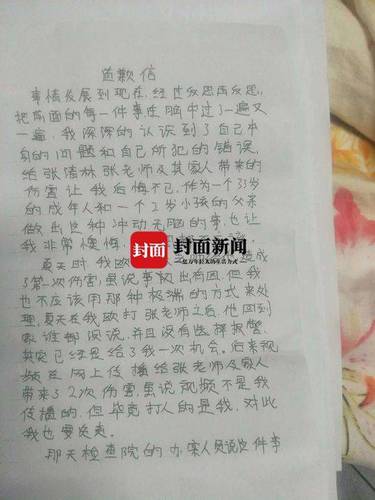 道歉信
事情发展到现在，经过反思再反思，
把前面的每一件事往脑中过了一遍又
一遍，我深深的认识到了自己本
身的问题和自己所犯的错误，
给张清林张老师及其家人带来的
伤害让我后悔不已，作为一个33岁
的成年人和一个2岁小孩的父亲
做出这种冲动无脑的事，也让
我非常懊悔，
夏天时我殴 造成
了第一次伤害，虽说事极出有因，但我
也不应该用那种极端的方式来处
理，夏天在我殴打张老师之后，他回到
家谁都没说，并且没有选择报警，
其实已经是给了我一次机会。后来视
频在网上传播给张老师及家人
带来了2次伤害，虽说视频不是我
传播的，但毕竟打人的是我，对此
我也要负责。
那天检查院的办案人员说这件事
封面 封面新闻
亿万年轻人的生活方式
封面 封面新闻